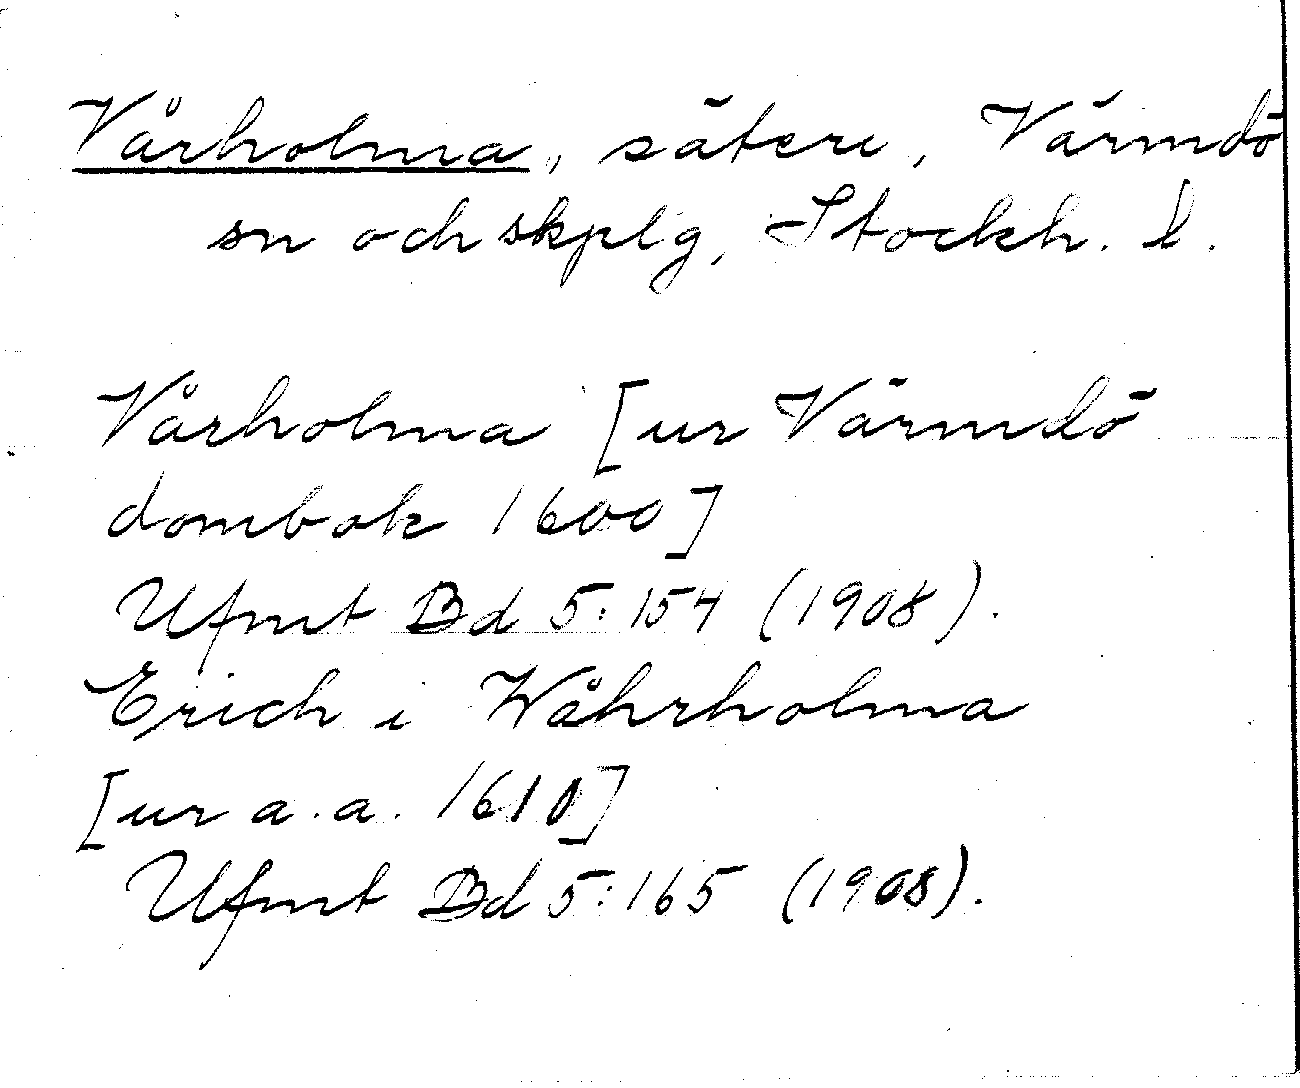 Vårholma, säteri, Värmdö
sn och skplg, Stockh. l.
Vårholma [ur Värmdö
dombok 1600]
Ufmt Bd 5:154 (1908).
Erich i Wåhrholma
[ur a.a. 1610]
Ufmt Bd 5:165 (1908).